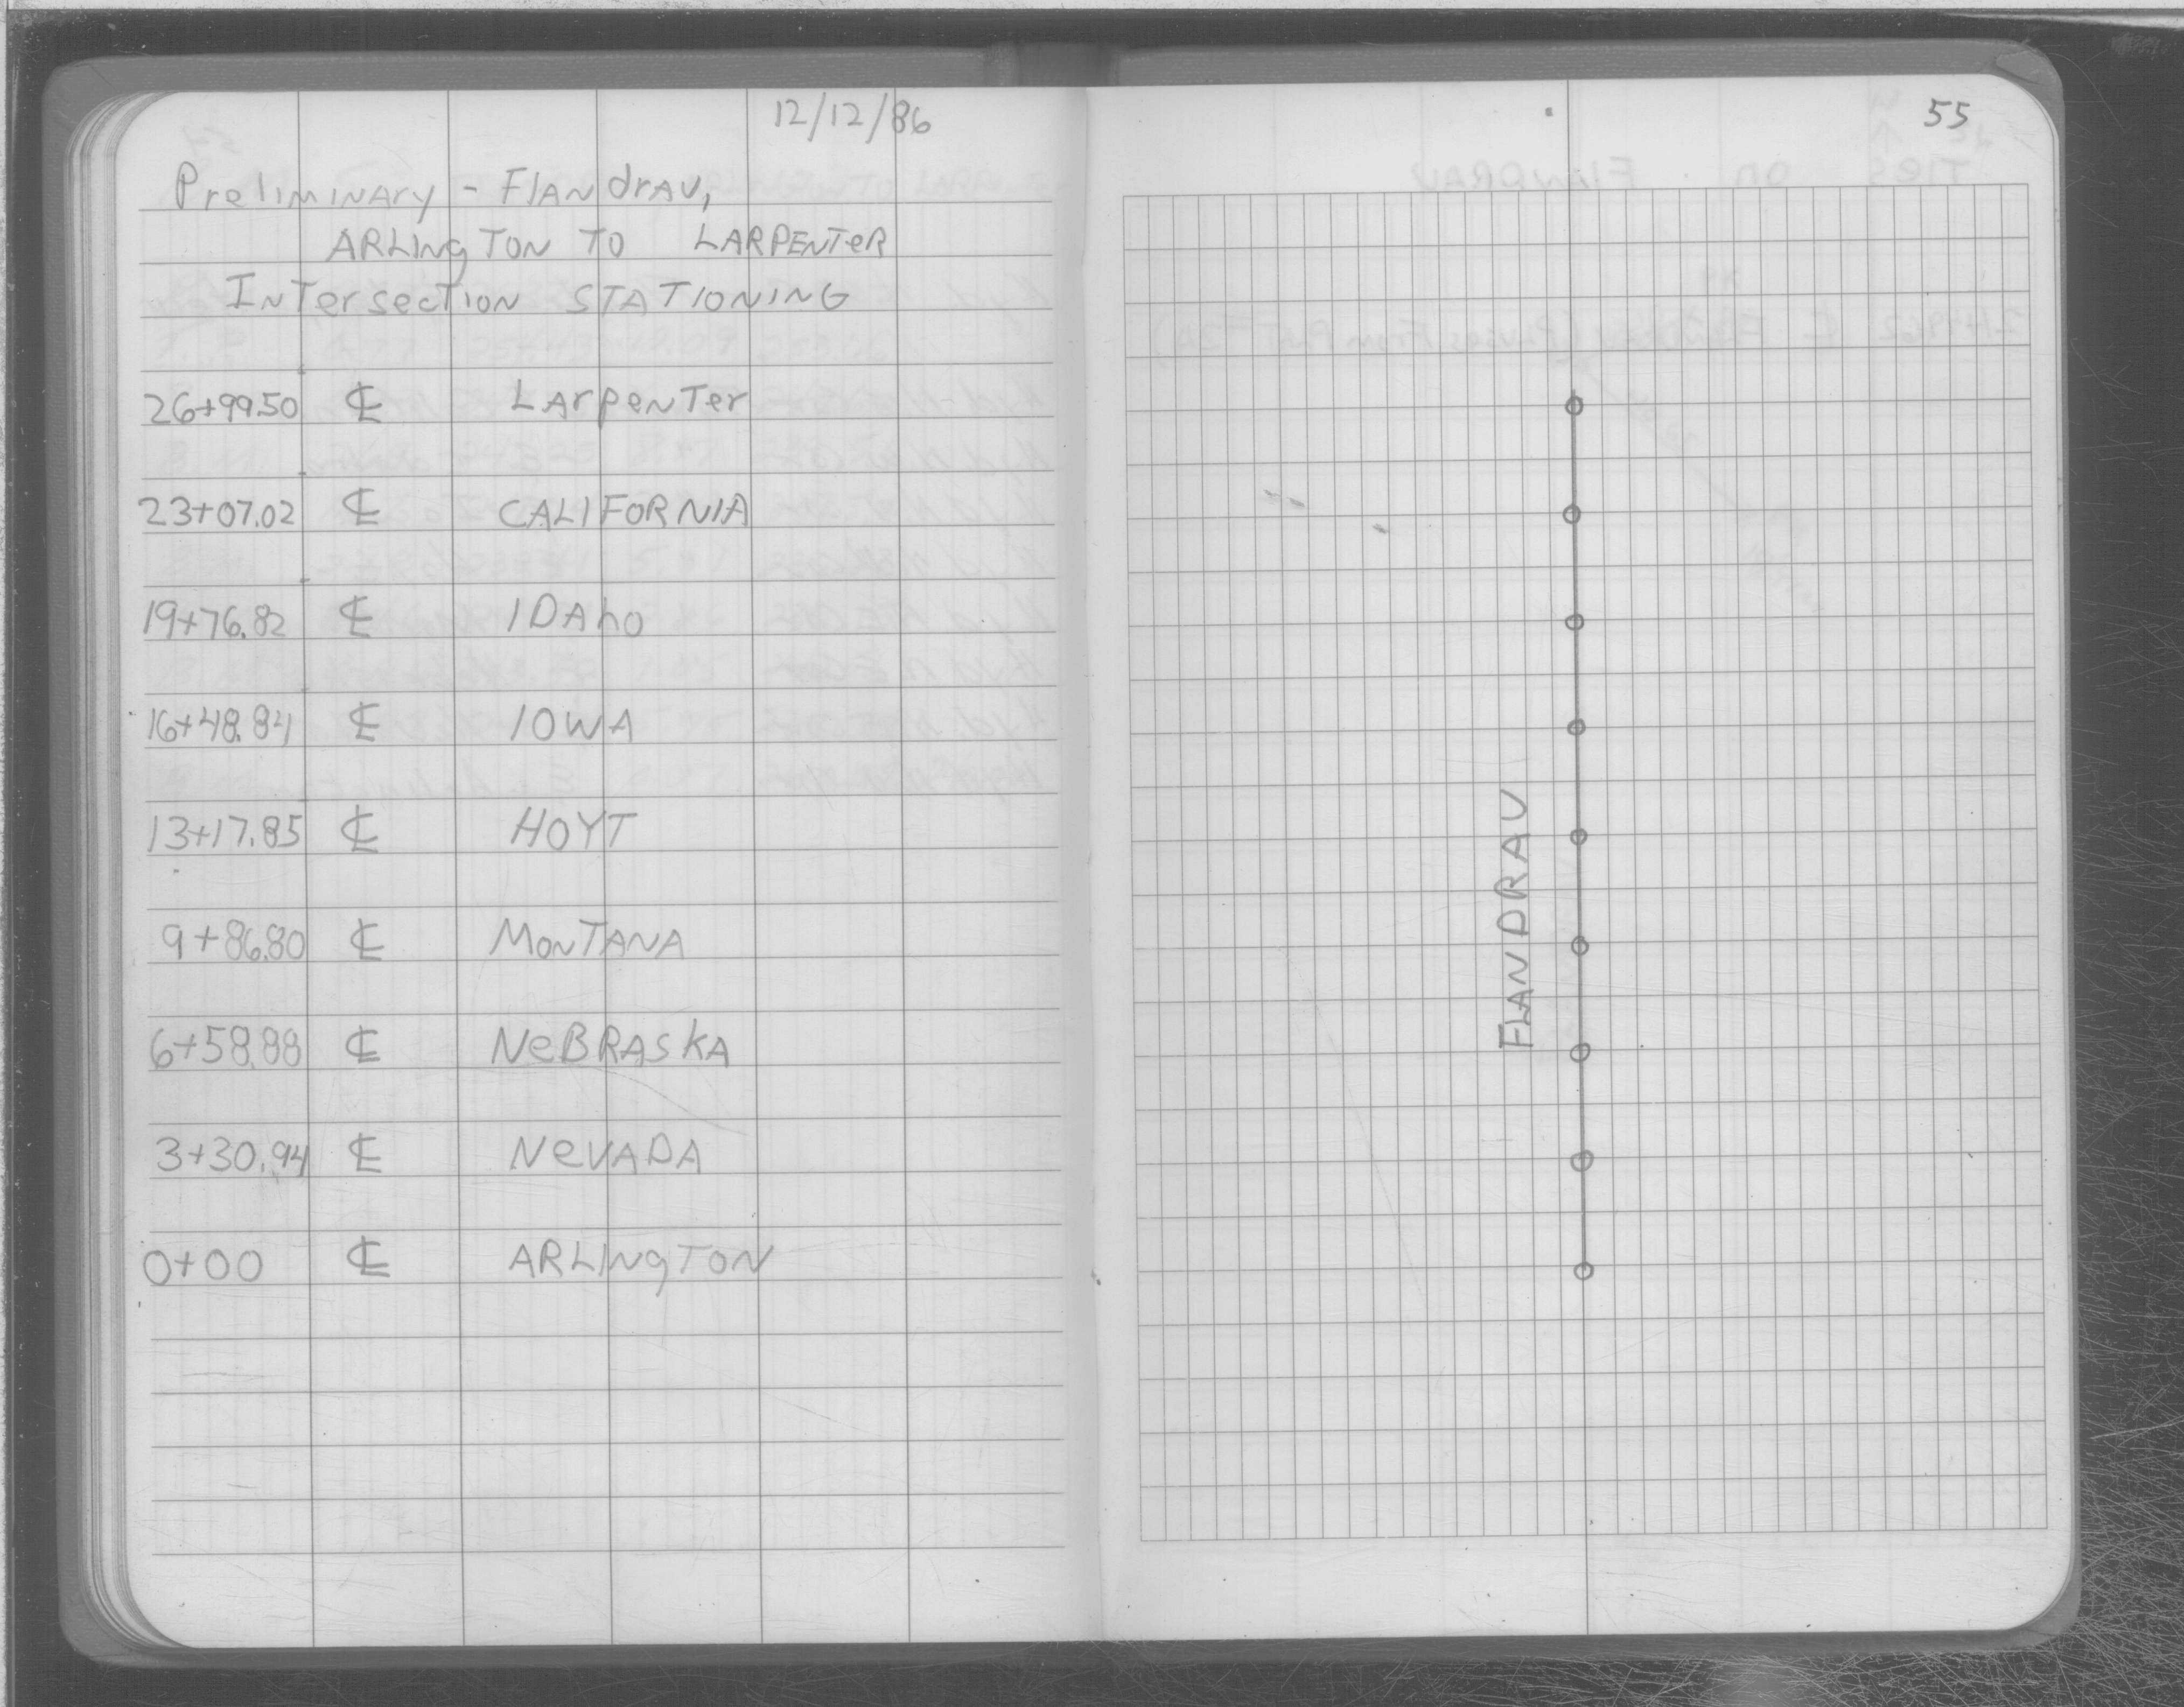 12/12/86
Preliminary - Flandrau,
ARLINGTON TO LARPENTER
INTERSECTION STATIONING
26+99.50 ℄ LARPENTER
23+07.02 ℄ CALIFORNIA
19+76.82 ℄ IDAHO
16+48.84 ℄ IOWA
13+17.85 ℄ HOYT
9+86.80 ℄ MONTANA
6+58.88 ℄ NEBRASKA
3+30.94 ℄ NEVADA
0+00 ℄ ARLINGTON
55
FLANDRAU